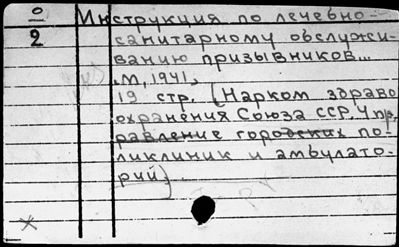 0
Инструкция по лечебно-
2 санитарному обслужи-
ванию призывников...
М, 1941,
19 стр. (Нарком здраво
охранения Союза ССР, Упр.
равление городских по-
ликлиник и амбулато-
рий).